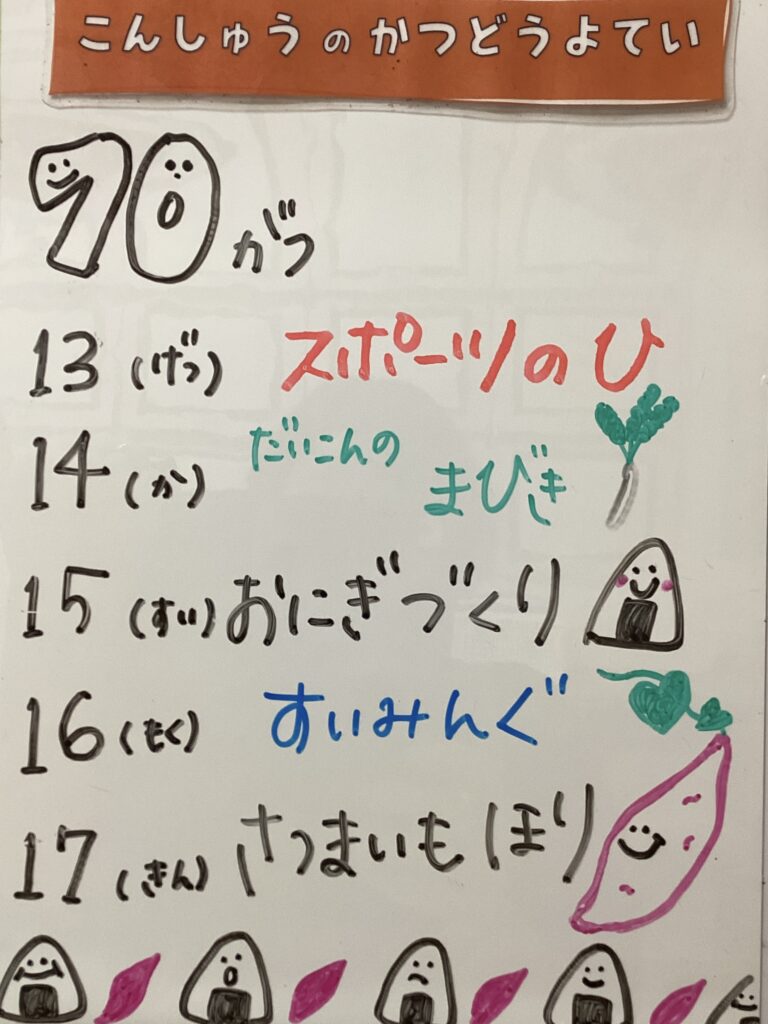 こんしゅうのかつどうよてい
10がつ
13(げつ) スポーツのひ
14(か) だいこんの まびき
15(すい) おにぎづくり
16(もく) すいみんぐ
17(きん) さつまいもほり